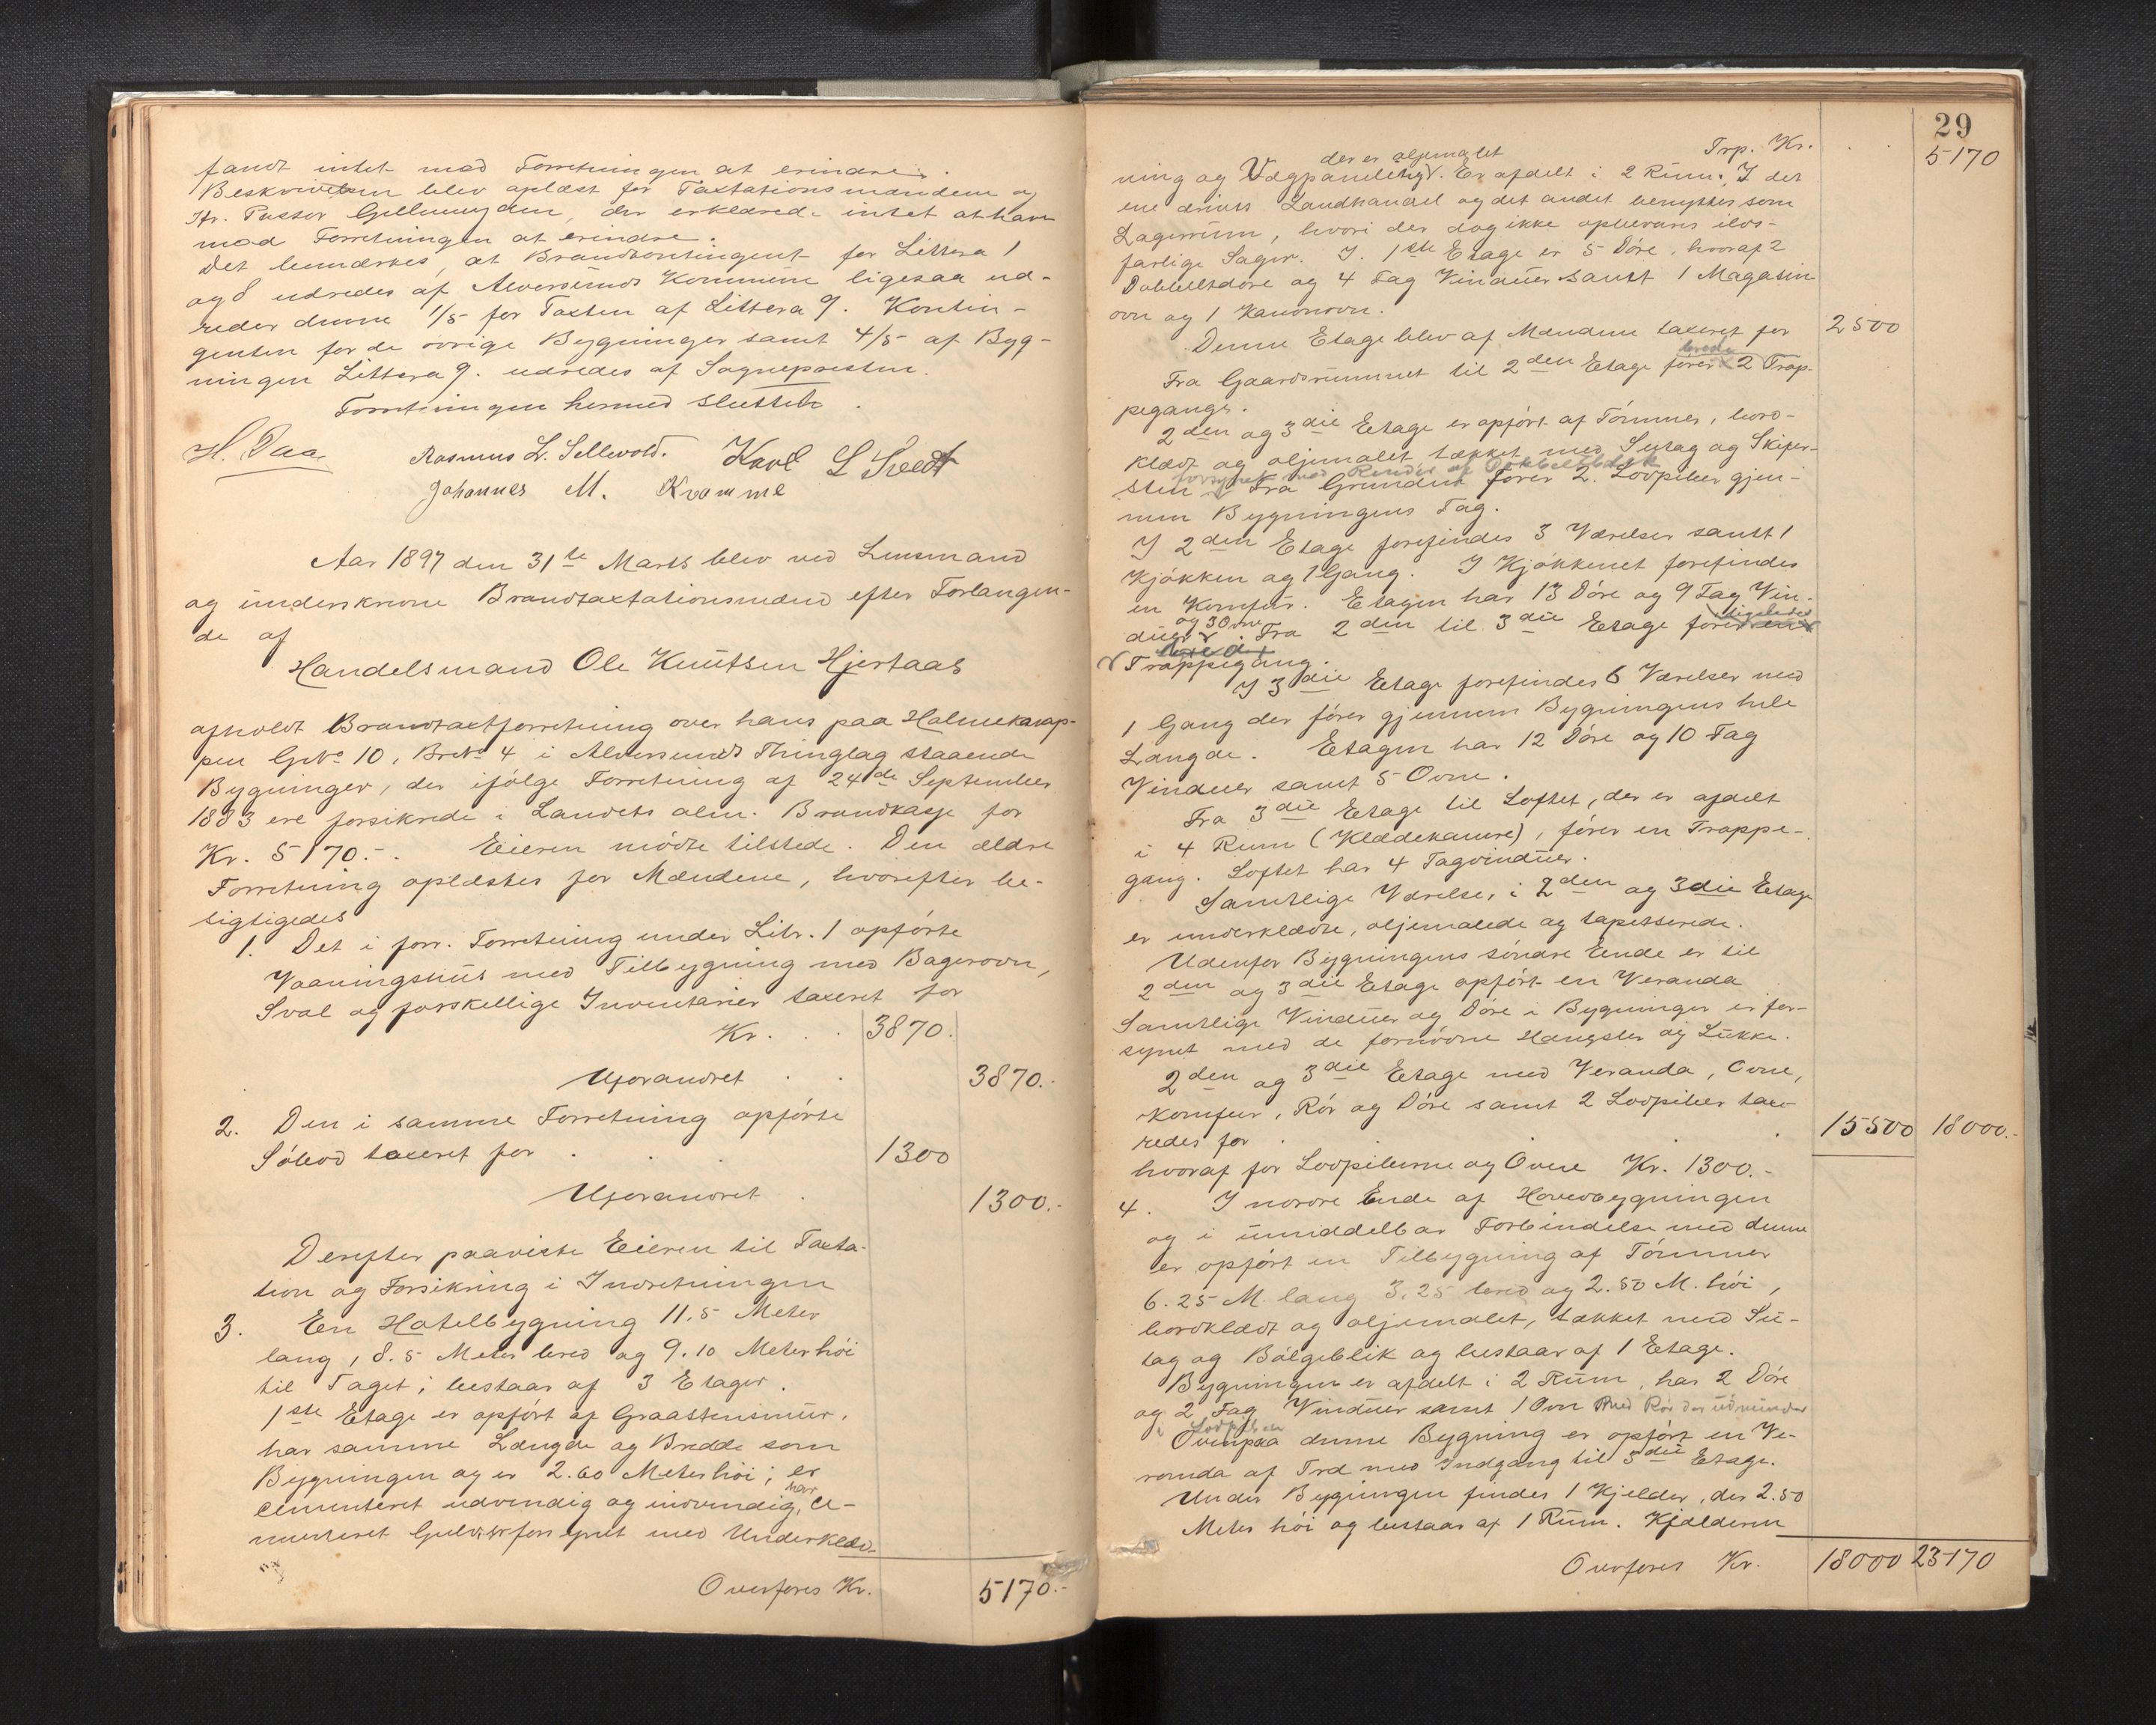 fandt intet mod Forretningen at erindre.
Beskrivelsen blev oplæst for Taxtationsmændene og
Hr. Pastor Gellemyden, der erklærede intet at have
mod Forretningen at erindre.
Det bemærkes, at Brandkontingent for Littera 1
og 8 udredes af Alversunds Kommune ligesaa ud-
reder denne 1/5 for Taxten af Littera 9. Kontin-
genten for de øvrige Bygninger samt 4/5 af Byg-
ningen Littera 9. udredes af Sognepresten.
Forretningen hermed sluttet.
H. Daa
Rasmus L. Sellevold. Karl L Tvedt
Johannes M. Kvamme
Aar 1897 den 31te Marts blev ved Lensmand
og underskrevne Brandtaxtationsmænd efter Forlangen-
de af
Handelsmand Ole Knutsen Hjertaas
afholdt Brandtaxtforretning over hans paa Holmeknap-
pen GNo 10, BrNo 4 i Alversunds Thinglag staaende
Bygninger, der ifølge Forretning af 24de September
1883 ere forsikrede i Landets alm. Brandkasse for
Kr. 5170.-. Eieren mødte tilstede. Den ældre
Forretning oplæstes for Mændene, hvorefter be-
sigtigedes
1. Det i forr. Forretning under Litr. 1 opførte
Vaaningshus med Tilbygning med Bagerovn,
Sval og forskellige Inventarier taxeret for
Kr. . 3870.
Uforandret . . 3870.-
2. Den i samme Forretning opførte
Søbod taxeret for . . . 1300
Uforandret . 1300.-
Derefter paaviste Eieren til Taxta-
tion og Forsikring i Indretningen
3. En Hotelbygning 11.5 Meter
lang, 8.5 Meter bred og 9.10 Meter høi
til Taget; bestaar af 3 Etager.
1ste Etage er opført af Graastensmur,
har samme Længde og Bredde som
Bygningen og er 2.60 Meter høi; er
har
cementeret udvendig og indvendig, ce-
menteret Gulv, forsynet med Underklæd-
Overføres Kr. 5170.-
29
Trp. Kr. . . 5170
der er oljemalet
ning og Vægpaneling. Er afdelt i 2 Rum. I det
ene drives Landhandel og det andet benyttes som
Lagerrum, hvori der dog ikke opbevares ilds-
farlige Sager. I 1ste Etage er 5 Døre, hvoraf 2
Dobbeltdøre og 4 Fag Vinduer samt 1 Magasin-
ovn og 1 Kanonovn.
Denne Etage blev af Mændene taxeret for 2500
brede
Fra Gaardsrummet til 2den Etage fører 2 Trap-
pegange.
2den og 3die Etage er opført af Tømmer, bord-
klædt og oljemalet, tækket med Sutag og Skifer-
forsynet med Render af
sten. Fra Grunden fører 2 Lodpiber gjen-
nem Bygningens Tag.
I 2den Etage forefindes 3 Værelser samt 1
Kjøkken og 1 Gang. I Kjøkkenet forefindes
en Komfur. Etagen har 13 Døre og 9 Fag Vin-
og 3 Ovne ligeledes
duer. Fra 2den til 3die Etage fører en
bred
Trappegang.
I 3die Etage forefindes 6 Værelser med
1 Gang der fører gjennem Bygningens hele
Længde. Etagen har 12 Døre og 10 Fag
Vinduer samt 5 Ovne.
Fra 3die Etage til Loftet, der er afdelt
i 4 Rum (Klædekamre), fører en Trappe-
gang. Loftet har 4 Tagvinduer.
Samtlige Værelser i 2den og 3die Etage
er underklædte, oljemalede og tapetserede.
Udenfor Bygningens søndre Ende er til
2den og 3die Etage opført en Veranda
Samtlige Vinduer og Døre i Bygninger er for-
synet med de fornødne Hængsler og Lukke.
2den og 3die Etage med Veranda, Ovne,
Komfur, Rør og Døre samt 2 Lodpiber taxe-
redes for . . . . . 15500 18000.-
hvoraf for Lodpiberne og Ovne Kr. 1300.-
4. I nordre Ende af Hovedbygningen
og i umiddelbar Forbindelse med denne
er opført en Tilbygning af Tømmer
6.25 M. lang 3.25 bred og 2.50 M. høi,
bordklædt og oljemalet, tækket med Su-
tag og Bølgeblik og bestaar af 1 Etage.
Bygningen er afdelt i 2 Rum, har 2 Døre
og 2 Fag Vinduer samt 1 Ovn med Rør der udmunder
i Lodpiben
Ovenpaa denne Bygning er opført en Ve-
randa af Træ med Indgang til 3die Etage.
Under Bygningen findes 1 Kjelder, der 2.50
Meter høi og bestaar af 1 Rum. Kjælderen
Overføres Kr. 18000 23170